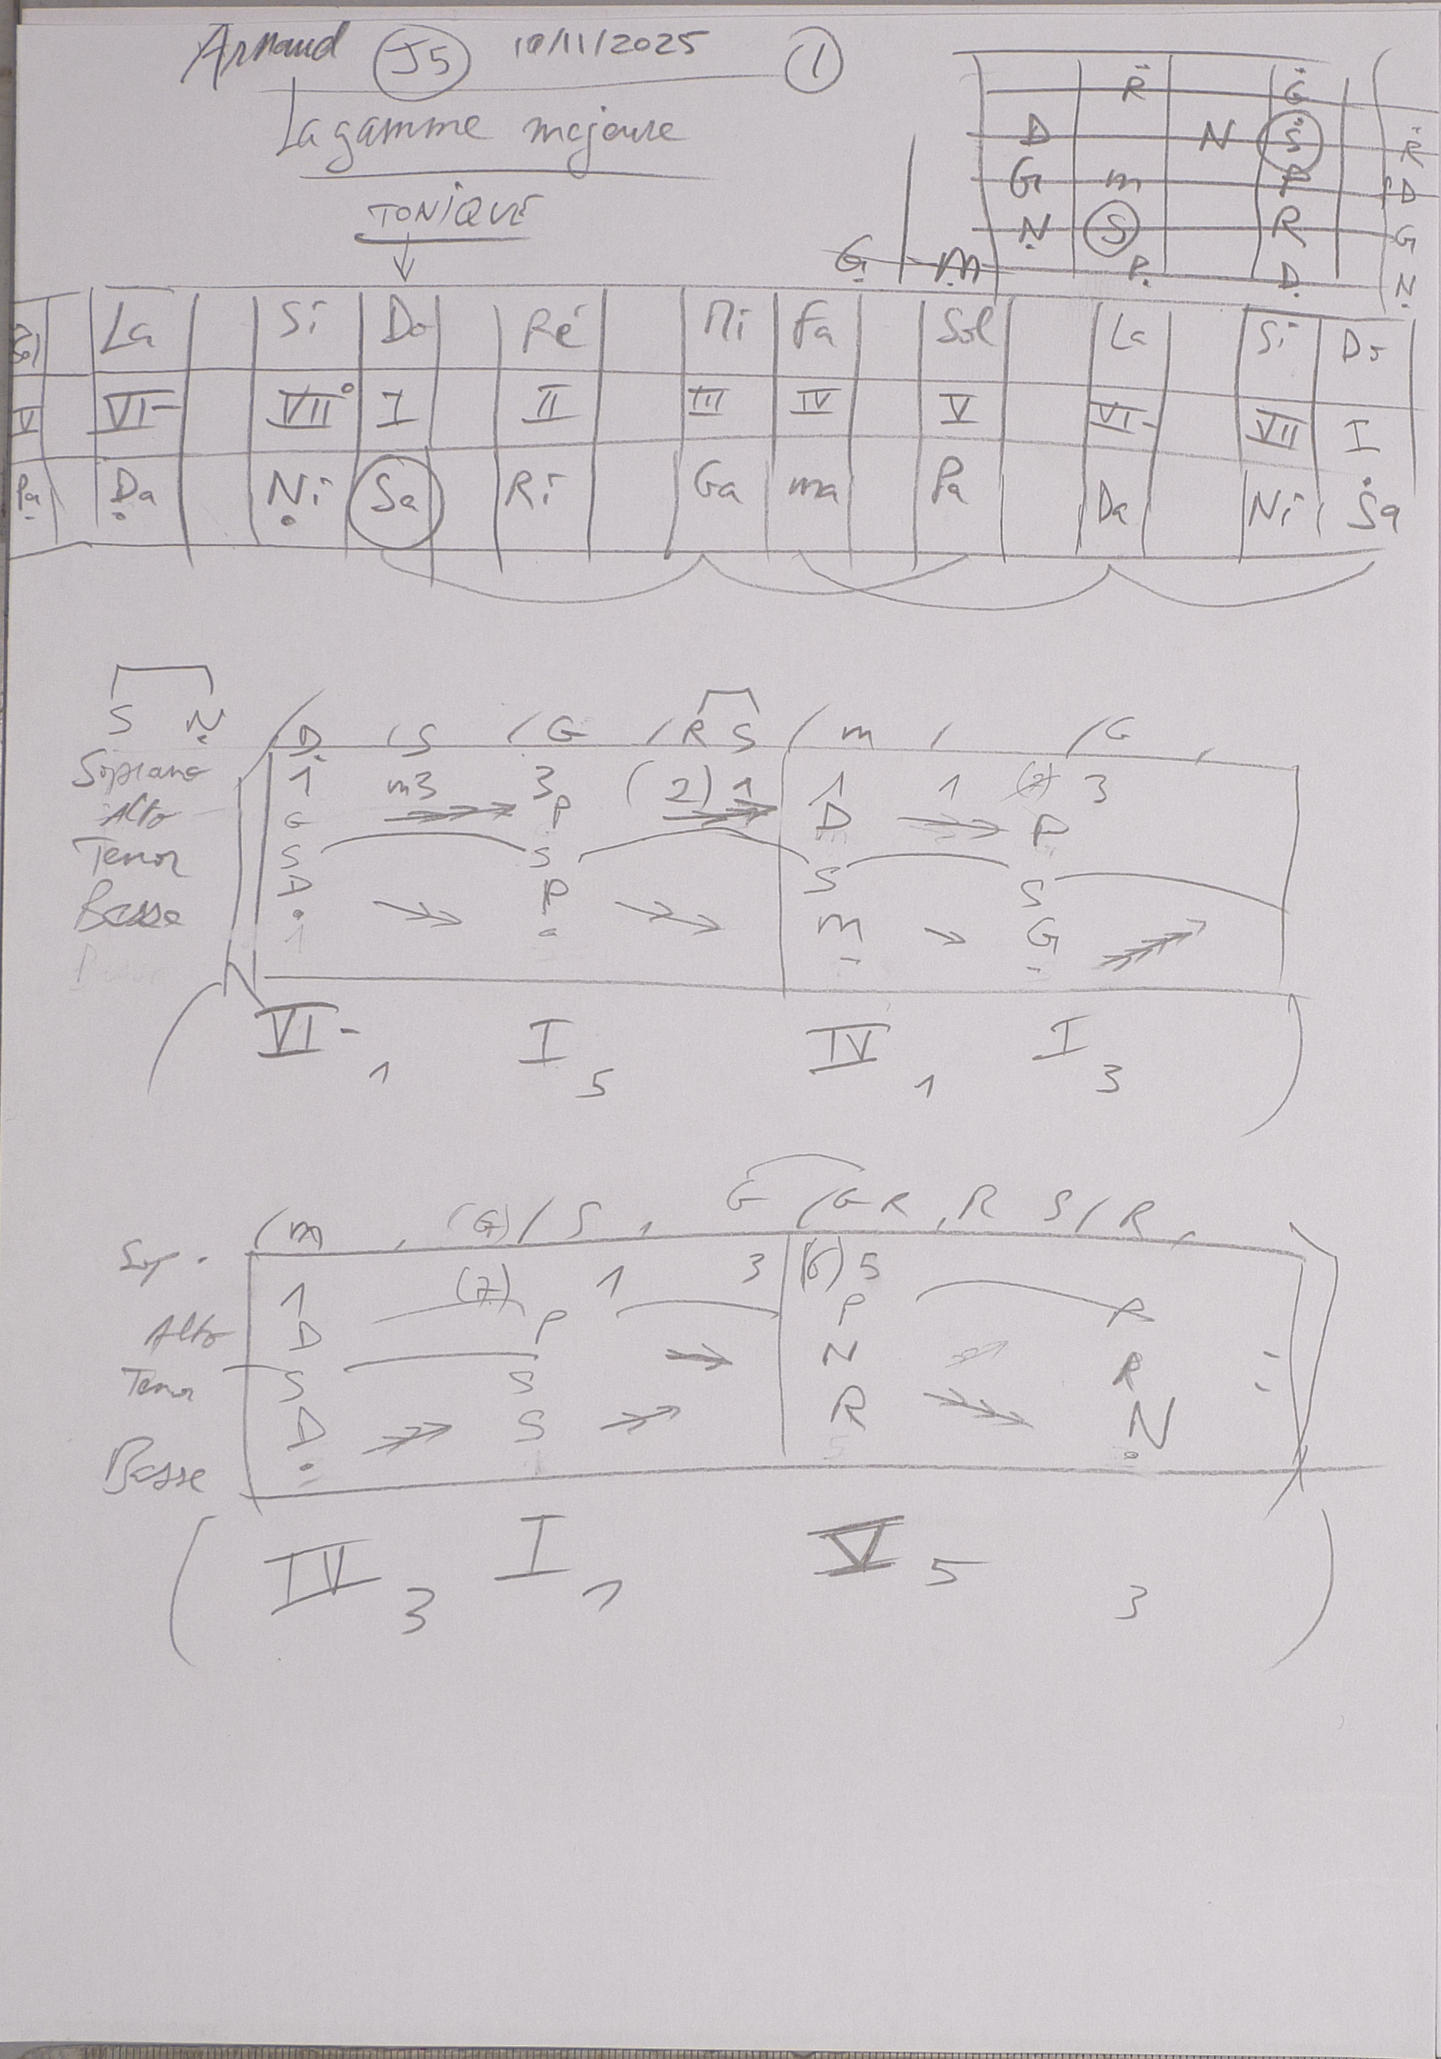 Arnaud J5 10/11/2025 1
La gamme majeure
TONIQUE
R̈ G̈
D N Ṡ Ṙ
G m P D
Ṇ S R G
G̣ ṃ P̣ Ḍ Ṇ
La Si Do Ré Mi Fa Sol La Si Do
V VI- VII° I II III IV V VI- VII I
Pa Ḍa Ṇi Sa Ri Ga ma Pa Da Ni Ṡa
S Ṇ / Ḍ / S / G / R S / m / / G ,
Soprano 1 m3 3 (2) 1 1 1 (2) 3
Alto G P D P
Tenor S S S S
Basse Ḍ P̣ ṃ G̣
1
VI- 1 I 5 IV 1 I 3
/ m , (G) / S , G / G R , R S / R ,
Sop. 1 (7) 1 3 (6) 5
Alto D P P R
Tenor S S N R
Basse Ḍ S R Ṇ
IV 3 I 1 V 5 3